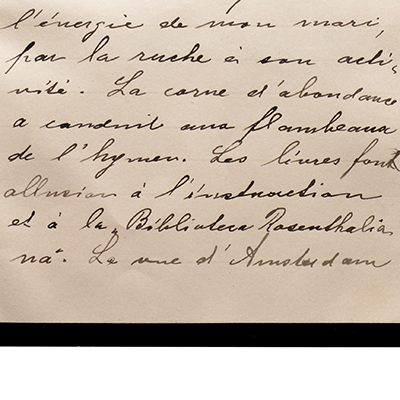 l'énergie de mon mari,
par la ruche à son acti-
vité. La corne d'abondance
a conduit aux flambeaux
de l'hymen. Les livres font
allusion à l'instruction
et à la „Biblioteca Rosenthalia
na". La vue d'Amsterdam